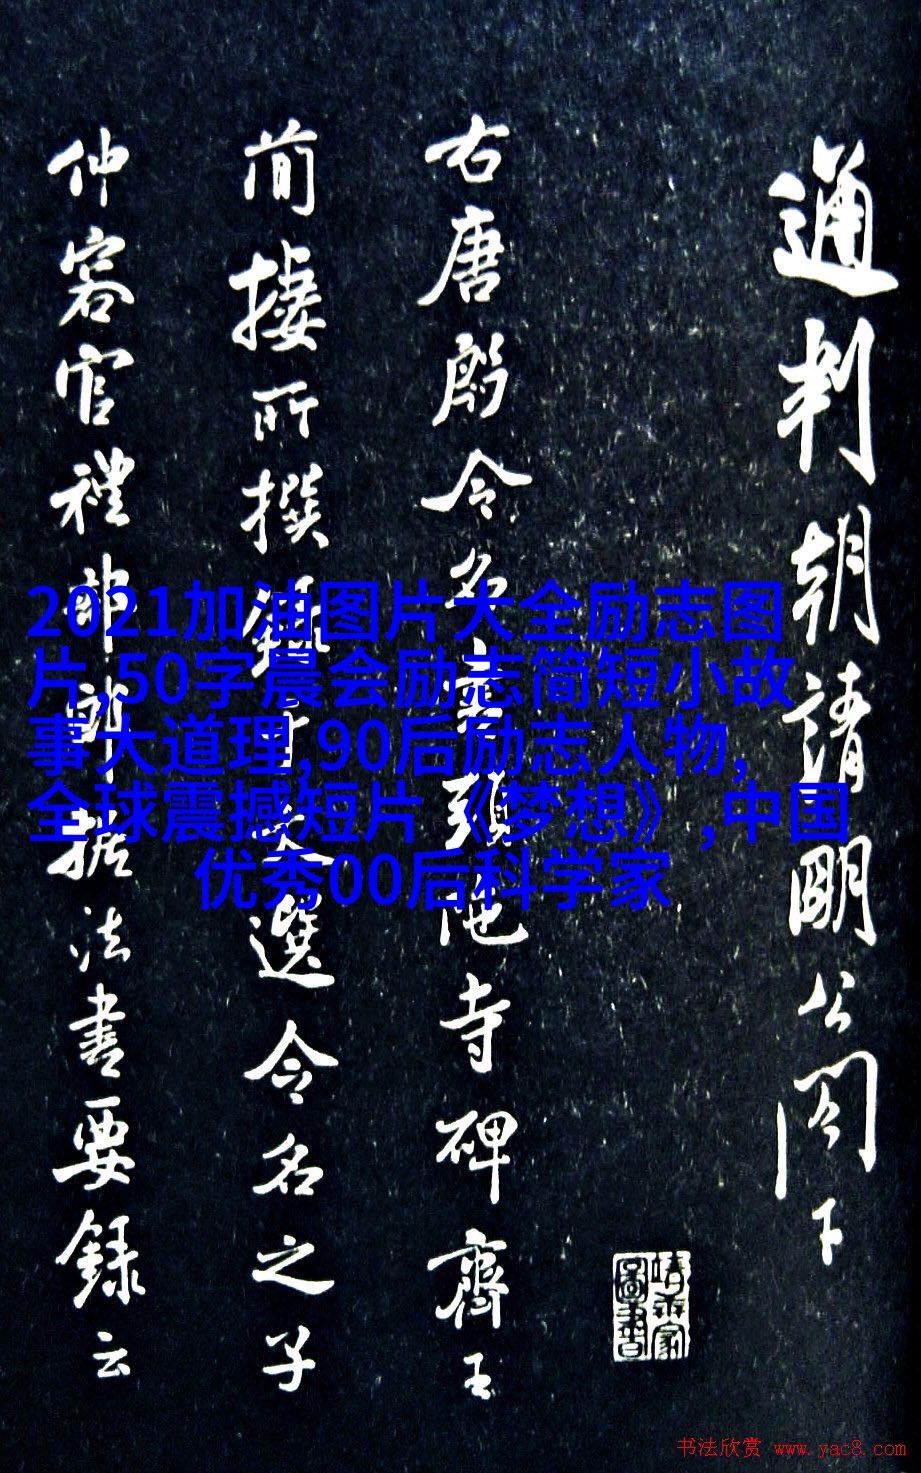 通判朝請明公閤下
右唐殷令名書頭陁寺碑齊王
简捿所撰文選令名之子
仲容官禮部郎據法書要録云
2021加油图片大全励志图
片,50字晨会励志简短小故
事大道理,90后励志人物,
全球震撼短片《梦想》,中国
优秀00后科学家
书法欣赏 www.yac8.com